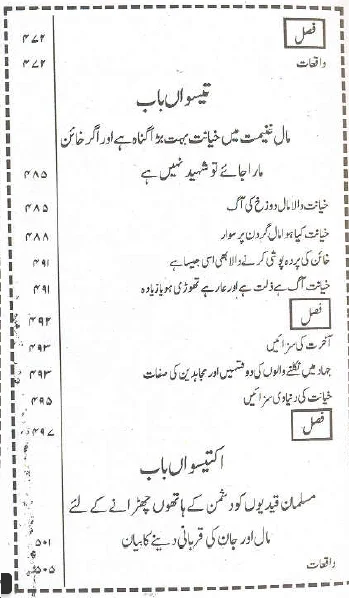 فصل ۴۷۲
واقعات ۴۷۲
تیسواں باب
مال غنیمت میں خیانت بہت بڑا گناہ ہے اور اگر خائن
مارا جائے تو شہید نہیں ہے ۴۸۵
خیانت والا مال دوزخ کی آگ ۴۸۵
خیانت کیا ہوا مال گردن پر سوار ۴۸۸
خائن کی پردہ پوشی کرنے والا بھی اسی جیسا ہے ۴۹۱
خیانت آگ ہے ذلت ہے اور عار ہے تھوڑی ہو یا زیادہ ۴۹۱
فصل ۴۹۲
آخرت کی سزائیں ۴۹۳
جہاد میں نکلنے والوں کی دو قسمیں اور مجاہدین کی صفات ۴۹۳
خیانت کی دنیاوی سزائیں ۴۹۵
فصل ۴۹۷
اکتیسواں باب
مسلمان قیدیوں کو دشمن کے ہاتھوں چھڑانے کے لئے
مال اور جان کی قربانی دینے کا بیان ۵۰۱
واقعات ۵۰۵